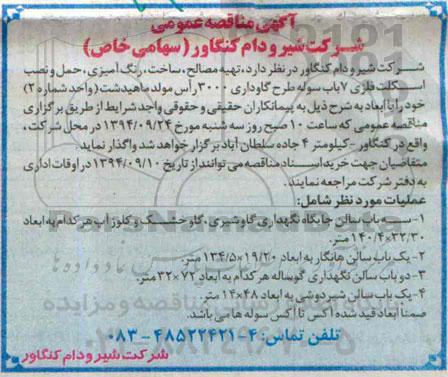 آگهی مناقصه عمومی
شرکت شیر و دام کنگاور (سهامی خاص)
شرکت شیر و دام کنگاور در نظر دارد، تهیه مصالح، ساخت، رنگ آمیزی، حمل و نصب
اسکلت فلزی ۷ باب سوله طرح گاوداری ۳۰۰۰ رأس مولد ماهیدشت (واحد شماره ۲)
خود را با ابعاد به شرح ذیل به پیمانکاران حقیقی و حقوقی واجد شرایط از طریق برگزاری
مناقصه عمومی که ساعت ۱۰ صبح روز سه شنبه مورخ ۱۳۹۴/۰۹/۲۴ در محل شرکت،
واقع در کنگاور - کیلومتر ۴ جاده سلطان آباد برگزار خواهد شد واگذار نماید.
متقاضیان جهت خرید اسناد مناقصه می توانند از تاریخ ۱۳۹۴/۰۹/۱۰ در اوقات اداری
به دفتر شرکت مراجعه نمایند.
عملیات مورد نظر شامل:
۱- سه باب سالن جایگاه نگهداری گاو شیری، گاو خشک و کلوز آپ هر کدام به ابعاد
۳۲/۳۰×۱۴۰/۴ متر.
۲- یک باب سالن هانگار به ابعاد ۱۹/۲۰×۱۳۴/۵ متر.
۳- دو باب سالن نگهداری گوساله هر کدام به ابعاد ۷۲×۳۲ متر.
۴- یک باب سالن شیردوشی به ابعاد ۴۸×۱۴ متر.
ضمناً ابعاد قید شده آکس تا آکس سوله ها می باشد.
تلفن تماس: ۴-۴۸۵۲۲۴۲۱-۰۸۳
شرکت شیر و دام کنگاور